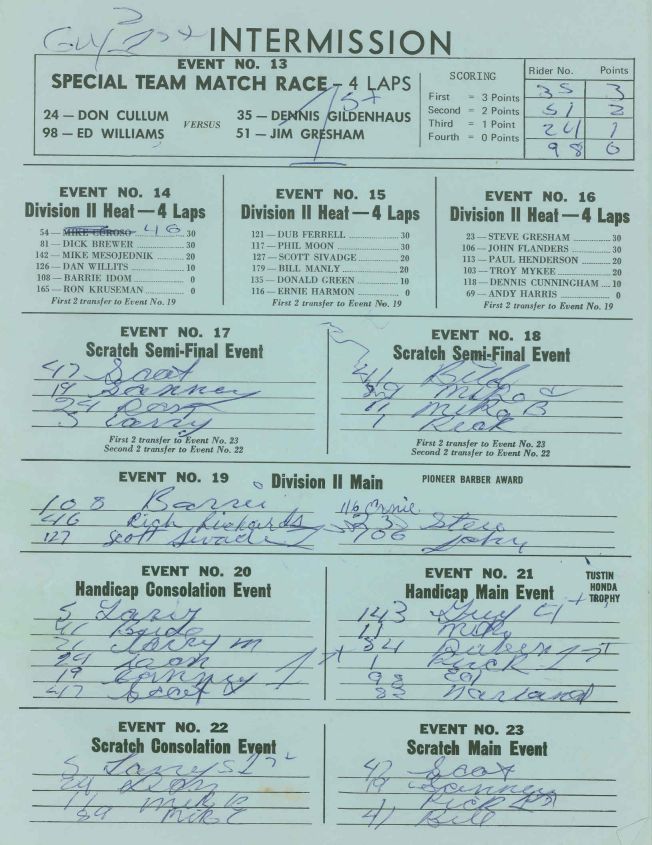 Guy
INTERMISSION
EVENT NO. 13
SPECIAL TEAM MATCH RACE - 4 LAPS
24 — DON CULLUM VERSUS 35 — DENNIS GILDENHAUS
98 — ED WILLIAMS 51 — JIM GRESHAM
1st
SCORING
First = 3 Points
Second = 2 Points
Third = 1 Point
Fourth = 0 Points
Rider No. Points
35 3
51 2
24 1
98 0
EVENT NO. 14
Division II Heat — 4 Laps
54 — MIKE CUROSO 46 30
81 — DICK BREWER 30
142 — MIKE MESOJEDNIK 20
126 — DAN WILLITS 10
108 — BARRIE IDOM 0
165 — RON KRUSEMAN 0
First 2 transfer to Event No. 19
EVENT NO. 15
Division II Heat — 4 Laps
121 — DUB FERRELL 30
117 — PHIL MOON 30
127 — SCOTT SIVADGE 20
179 — BILL MANLY 20
135 — DONALD GREEN 10
116 — ERNIE HARMON 0
First 2 transfer to Event No. 19
EVENT NO. 16
Division II Heat — 4 Laps
23 — STEVE GRESHAM 30
106 — JOHN FLANDERS 30
113 — PAUL HENDERSON 20
103 — TROY MYKEE 20
118 — DENNIS CUNNINGHAM 10
69 — ANDY HARRIS 0
First 2 transfer to Event No. 19
EVENT NO. 17
Scratch Semi-Final Event
47 Scot
19 Sonney
24
5 Larry
First 2 transfer to Event No. 23
Second 2 transfer to Event No. 22
EVENT NO. 18
Scratch Semi-Final Event
41 Bill
89 Mike C
11 Mike B
1 Rick
First 2 transfer to Event No. 23
Second 2 transfer to Event No. 22
EVENT NO. 19
Division II Main PIONEER BARBER AWARD
108 Barrie
46 Rich Richards
127 Scott
116 Ernie
23 Steve
106 John
EVENT NO. 20
Handicap Consolation Event
5 Larry
Larry M
19 Sonney
47 Scot
EVENT NO. 21
Handicap Main Event
TUSTIN
HONDA
TROPHY
143 Guy
11 Mike
1 Rick
98 Ed
EVENT NO. 22
Scratch Consolation Event
5 Larry
11 Mike B
89 Mike C
EVENT NO. 23
Scratch Main Event
47 Scot
19 Sonney
Rick
41 Bill